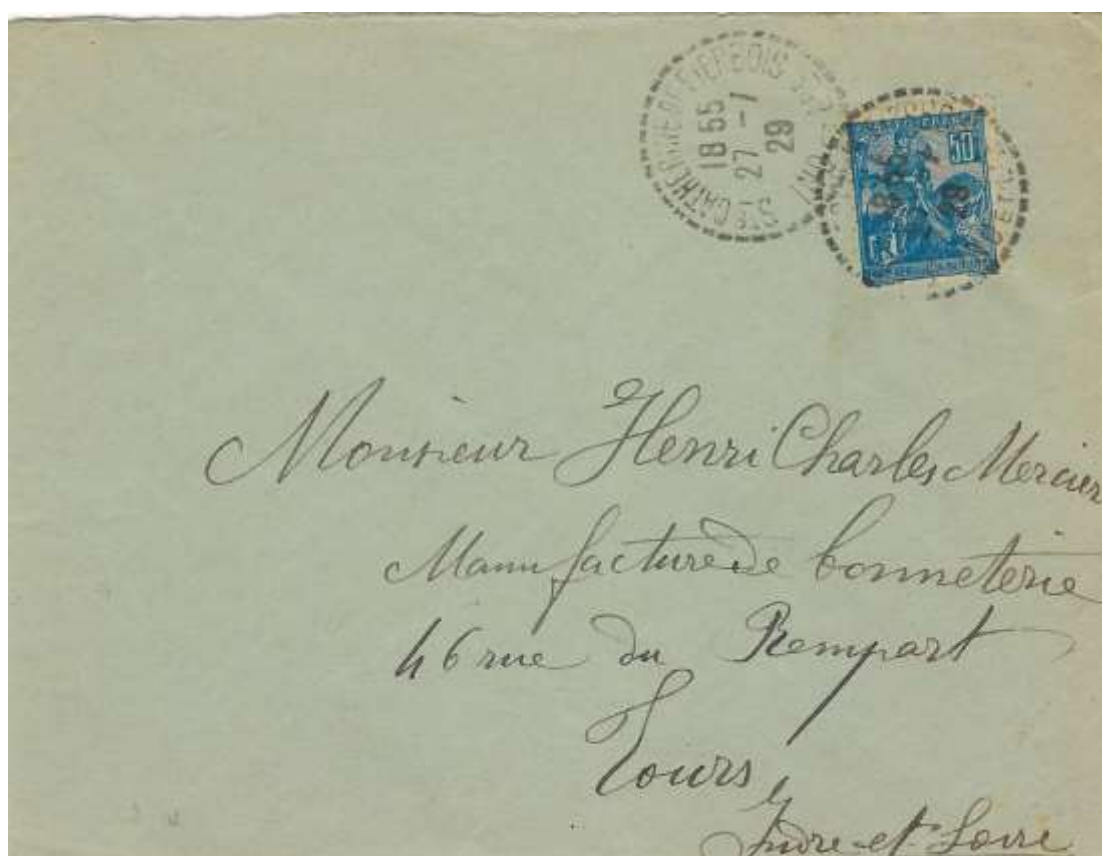 STE CATHERINE DE FIERBOIS
18 55
27 - 1
29
50
Monsieur Henri Charles Mercier
Manufacture de bonneterie
46 rue du Rempart
Tours
Indre-et-Loire